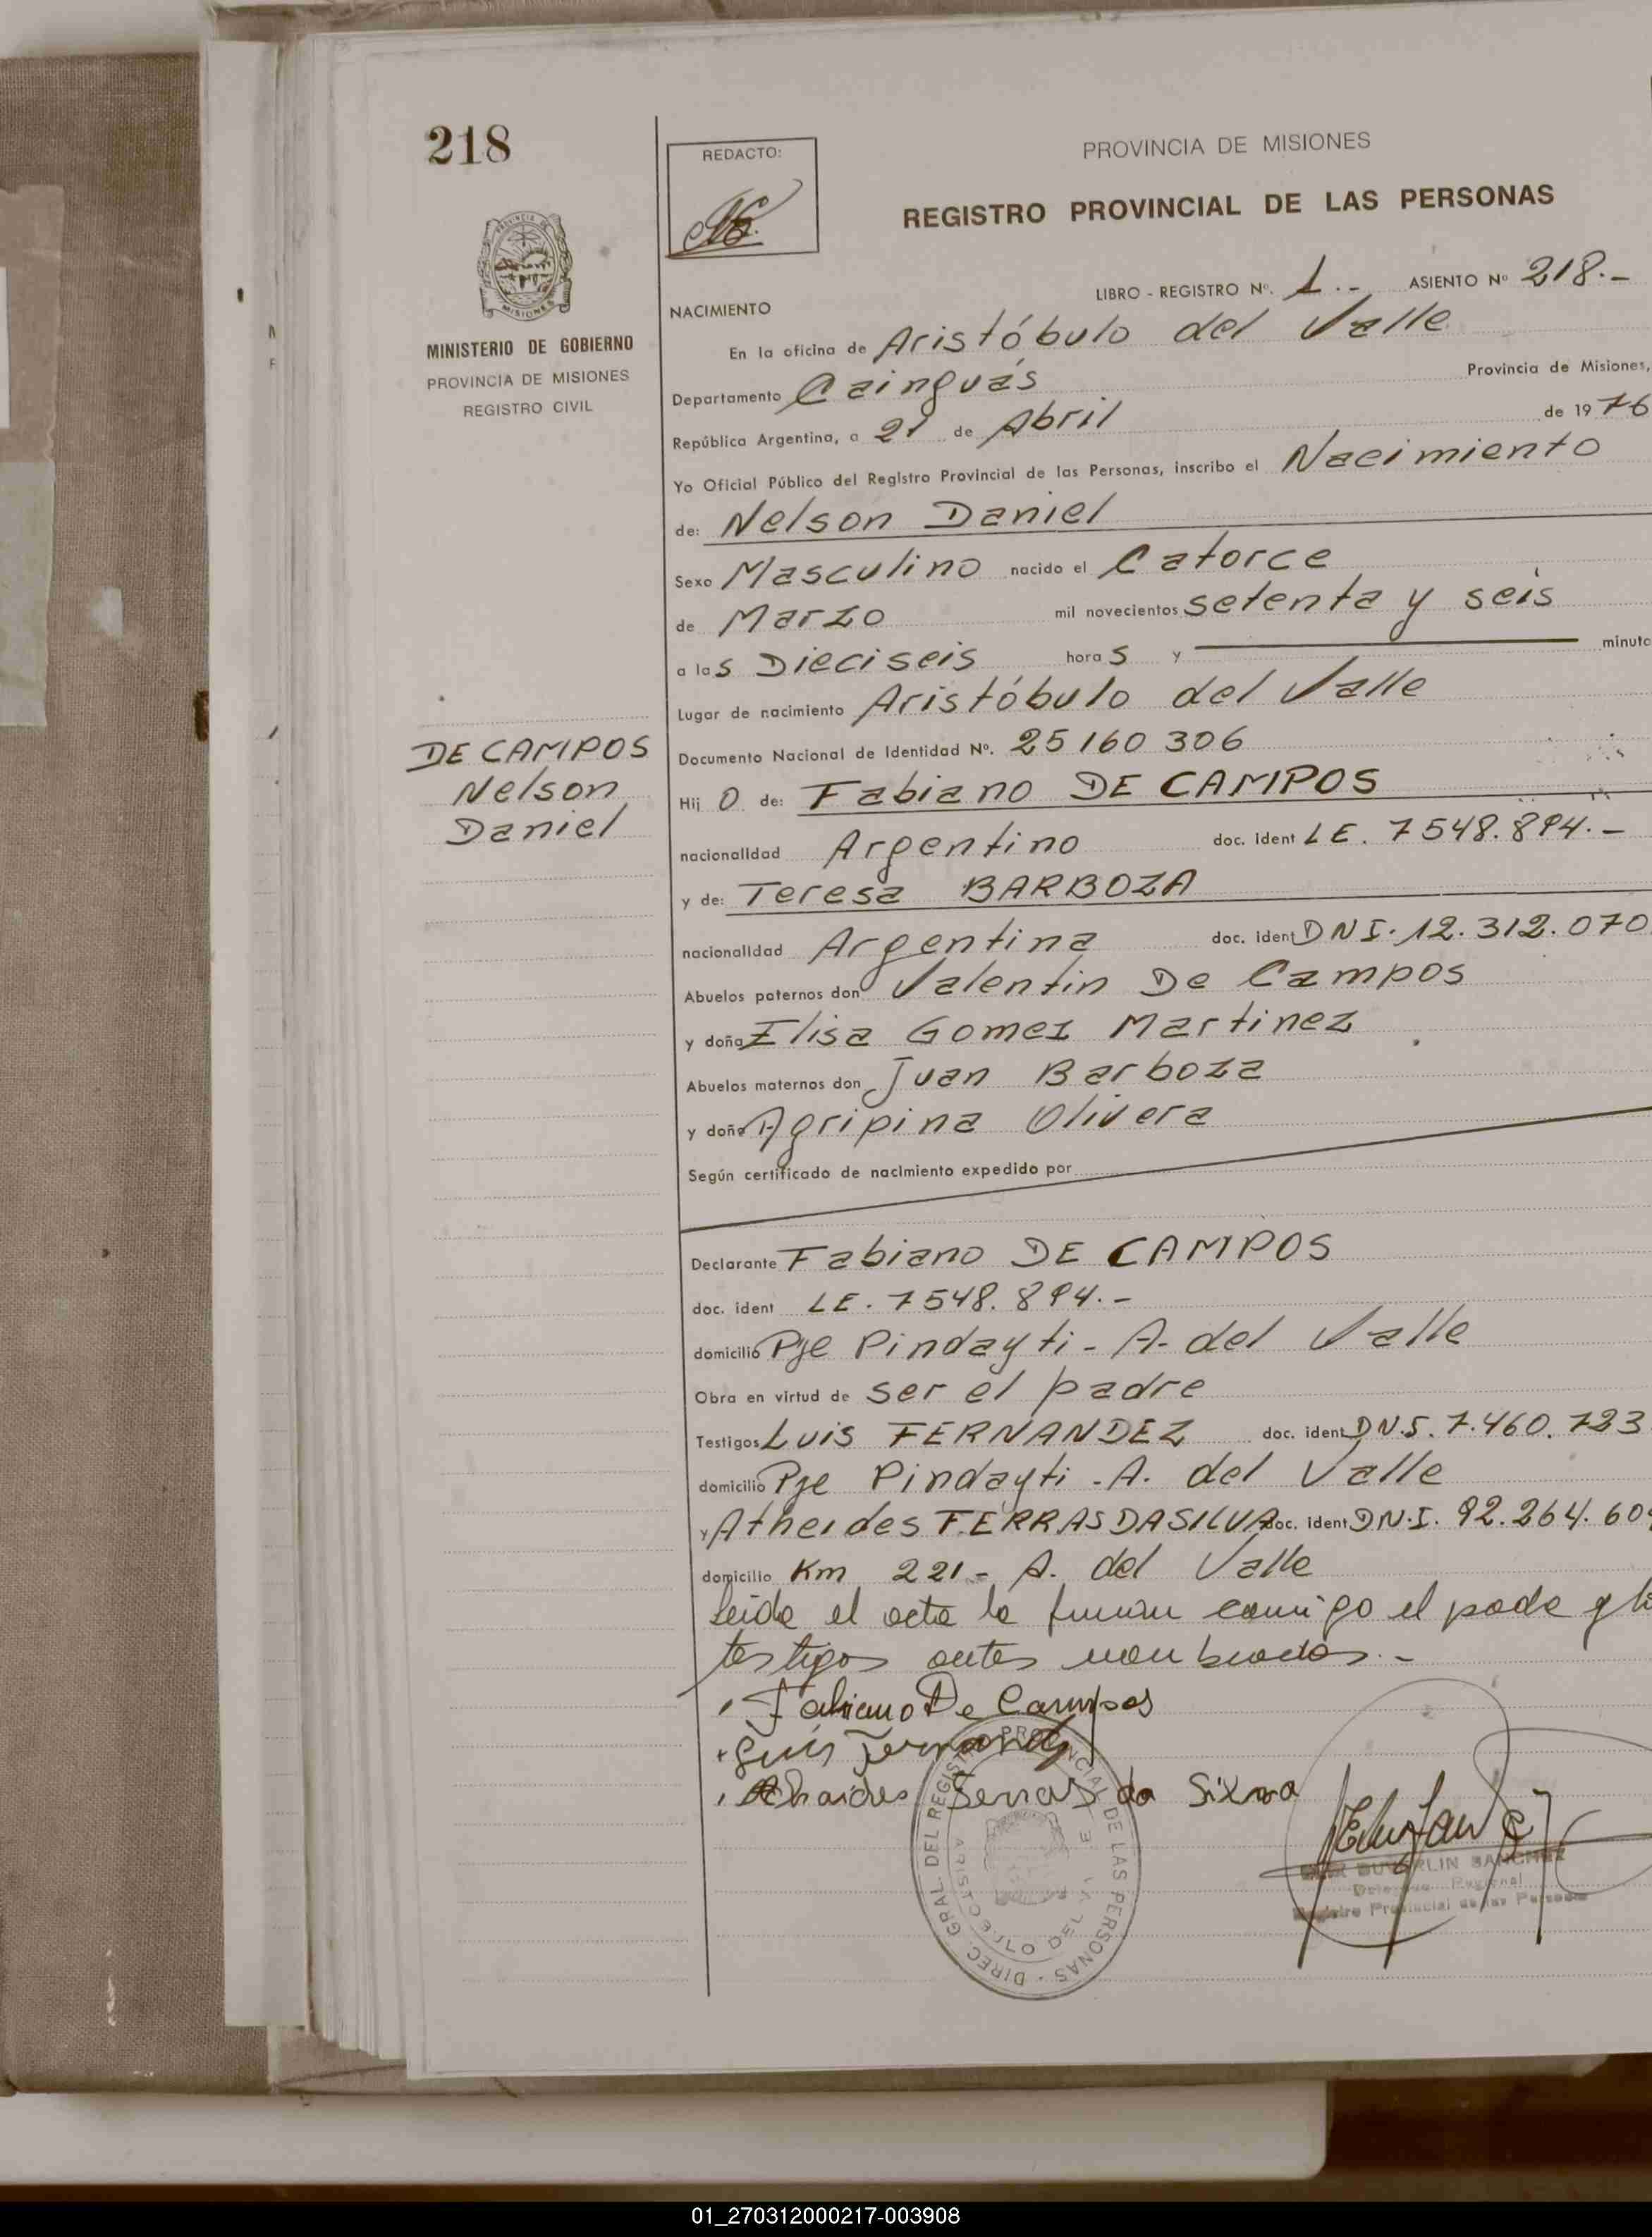 218
REDACTO:
PROVINCIA DE MISIONES
REGISTRO PROVINCIAL DE LAS PERSONAS
PROVINCIA DE
MISIONES
MINISTERIO DE GOBIERNO
PROVINCIA DE MISIONES
REGISTRO CIVIL
LIBRO - REGISTRO Nº. 1.- ASIENTO Nº 218.-
NACIMIENTO
En la oficina de Aristóbulo del Valle
Departamento Cainguás Provincia de Misiones,
República Argentina, a 21 de Abril de 1976
Yo Oficial Público del Registro Provincial de las Personas, inscribo el Nacimiento
de: Nelson Daniel
Sexo Masculino nacido el Catorce
de Marzo mil novecientos setenta y seis
a las Dieciseis horas y minuto
Lugar de nacimiento Aristóbulo del Valle
DE CAMPOS
Nelson
Daniel
Documento Nacional de Identidad Nº. 25160306
Hijo de: Fabiano DE CAMPOS
nacionalidad Argentino doc. ident LE. 7548.894.-
y de: Teresa BARBOZA
nacionalidad Argentina doc. ident DNI. 12.312.070
Abuelos paternos don Valentin De Campos
y doña Elisa Gomez Martinez
Abuelos maternos don Juan Barboza
y doña Agripina Olivera
Según certificado de nacimiento expedido por
Declarante Fabiano DE CAMPOS
doc. ident LE. 7548.894.-
domicilio Pje Pindayti - A. del Valle
Obra en virtud de ser el padre
Testigos Luis FERNANDEZ doc. ident DN.I. 7.460.723
domicilio Pje Pindayti - A. del Valle
y Atheides FERRAS DASILVA doc. ident DN.I. 92.264.60
domicilio Km 221 - A. del Valle
leida el acta la firman conmigo el padre y lo
testigos antes nombrados.-
Fabiano De Campos
Luis Fernandez
Ferras da Silva
DIREC. GRAL. DEL REGISTRO PROVINCIAL DE LAS PERSONAS
SANCHEZ
Regional
Registro Provincial de las Personas
01_270312000217-003908